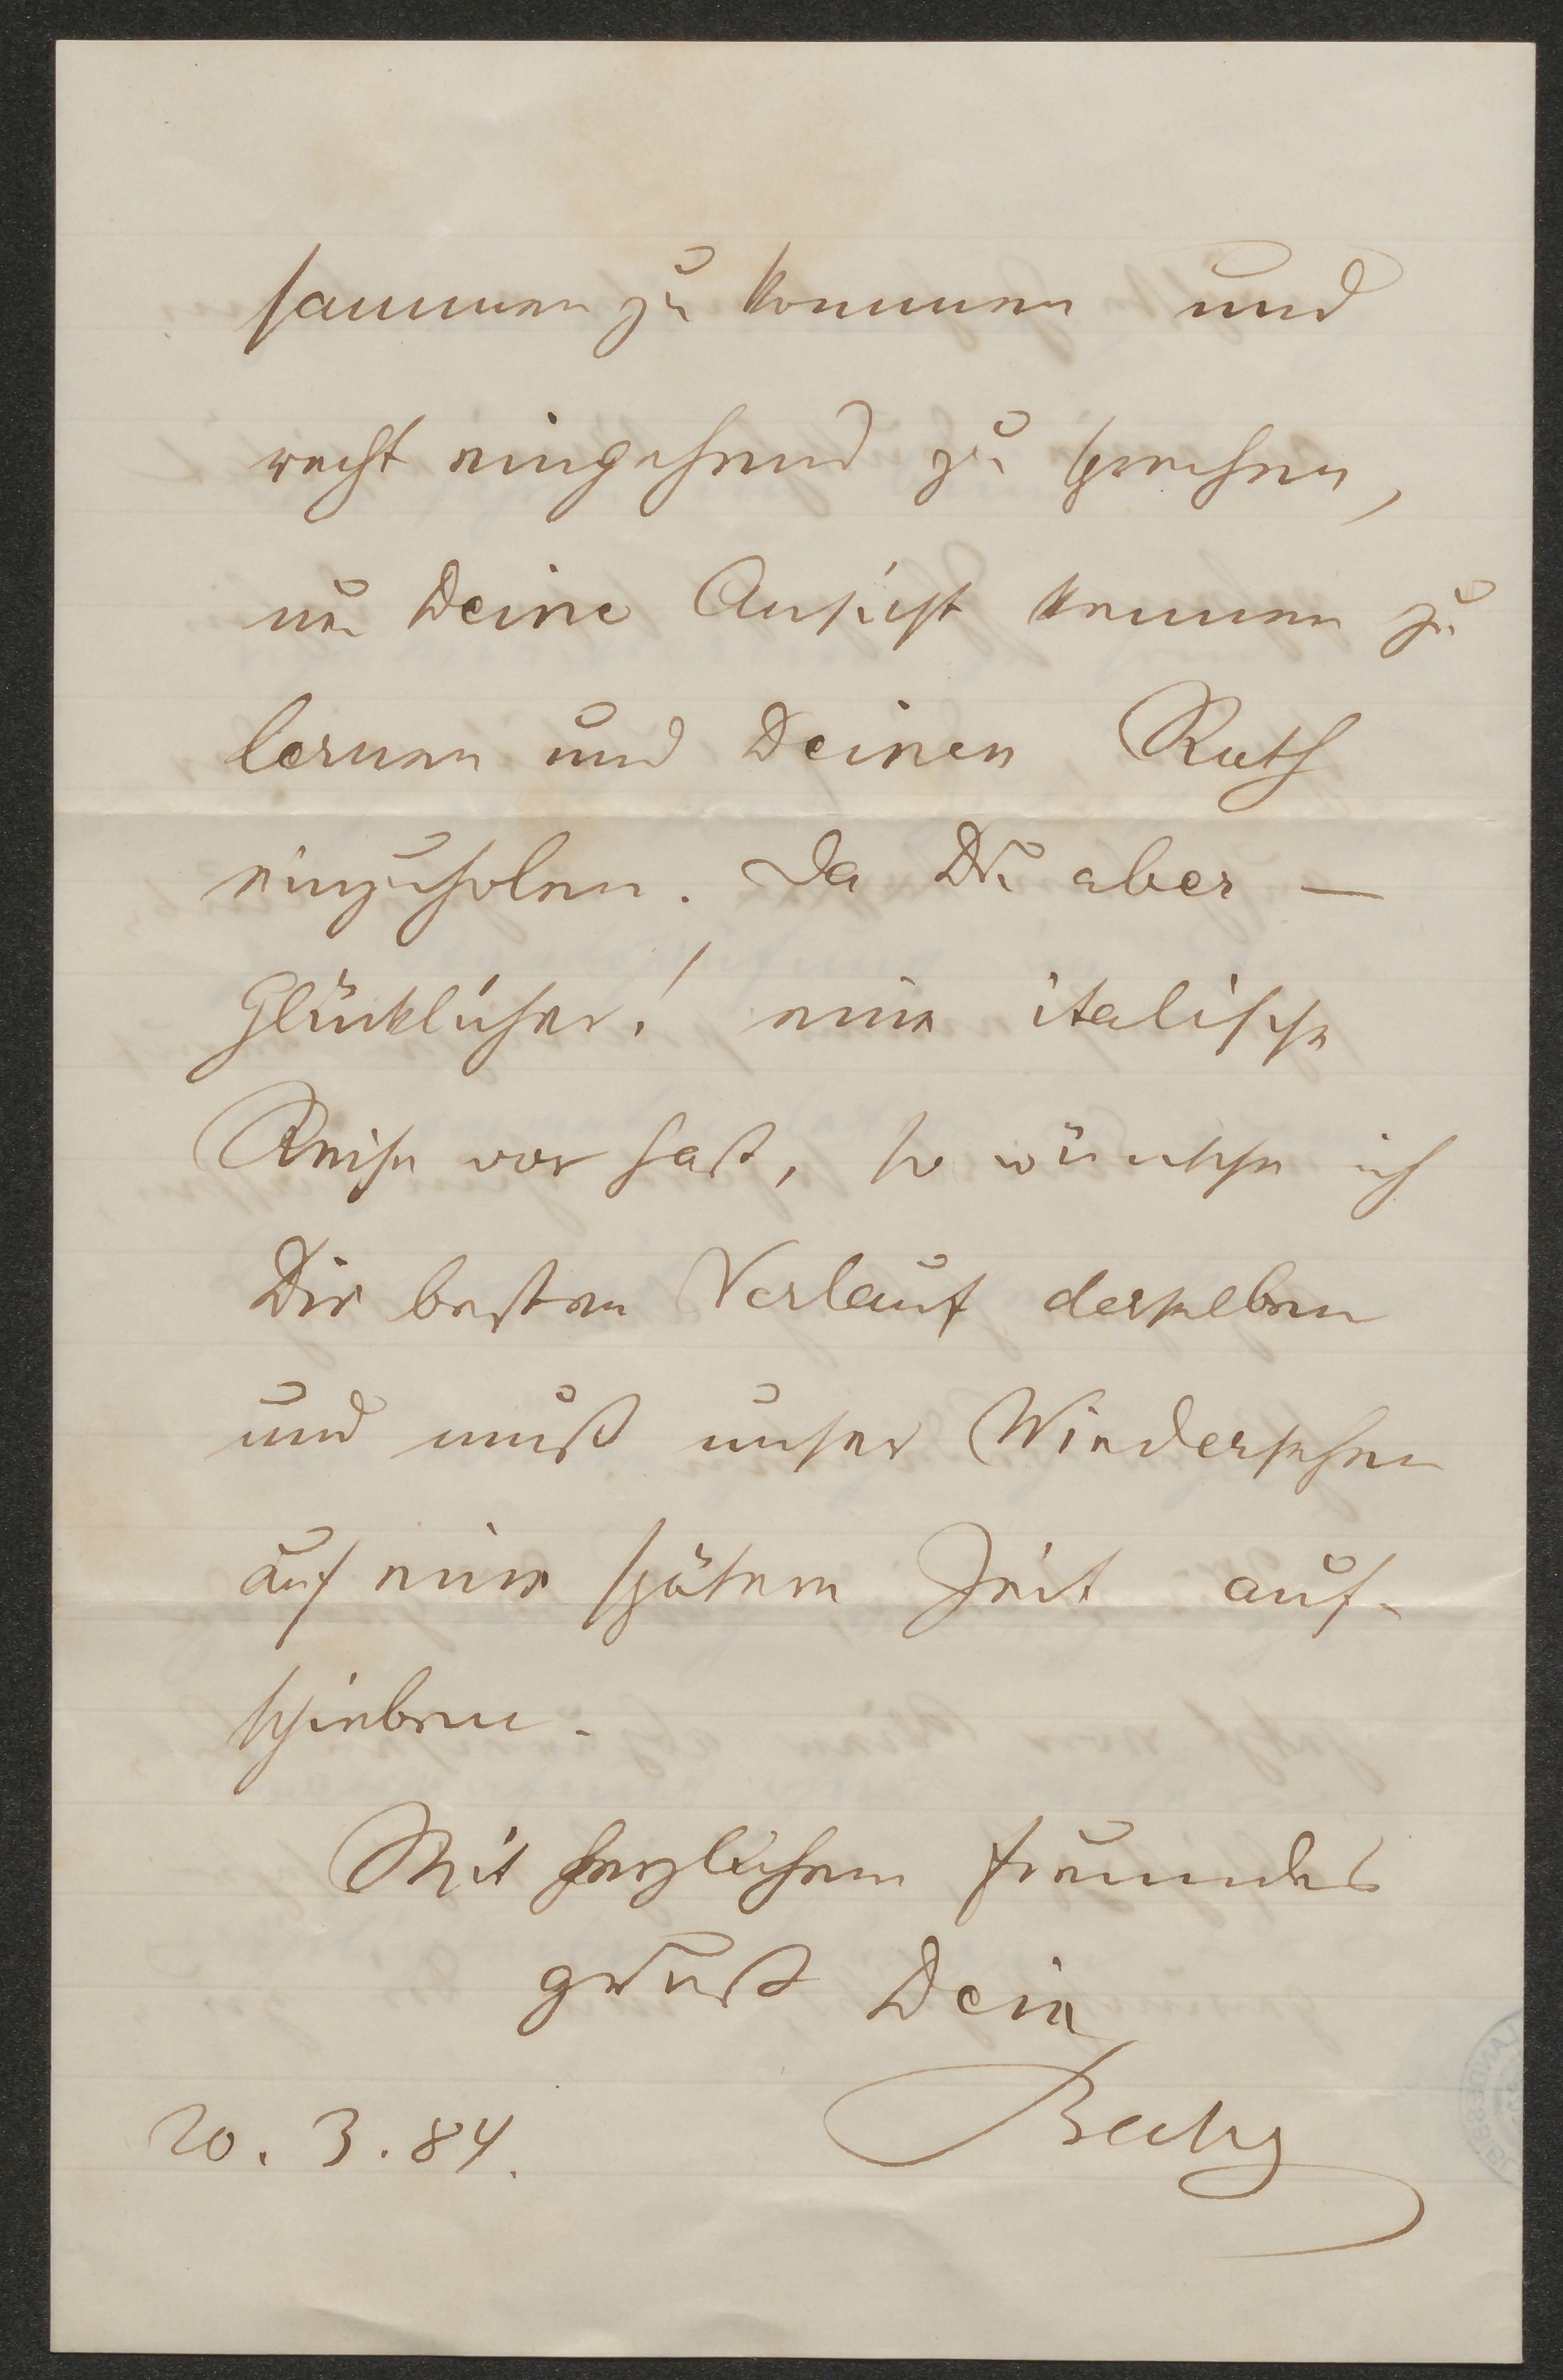 sammen zu kommen und
recht eingehend zu sprechen,
um Deine Ansicht kennen zu
lernen und Deinen Rath
einzuholen. Da Du aber —
Glücklicher! eine italische
Reise vor hast, so wünsche ich
Dir besten Verlauf derselben
und muß unser Wiedersehen
auf eine spätere Zeit auf-
schieben.
Mit herzlichem Freundes
gruß Dein
20. 3. 84.